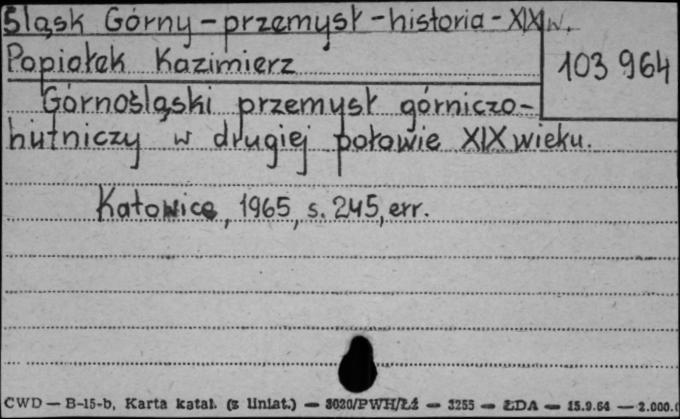 Śląsk Górny - przemysł - historia - XIX w.
Popiołek Kazimierz
103 964
Górnośląski przemysł górniczo-
hutniczy w drugiej połowie XIX wieku.
Katowice, 1965, s. 245, err.
CWD — B-15-b, Karta katal. (z liniat.) — 3020/PWH/Łź — 3255 — ŁDA — 15.9.64 — 2.000.0